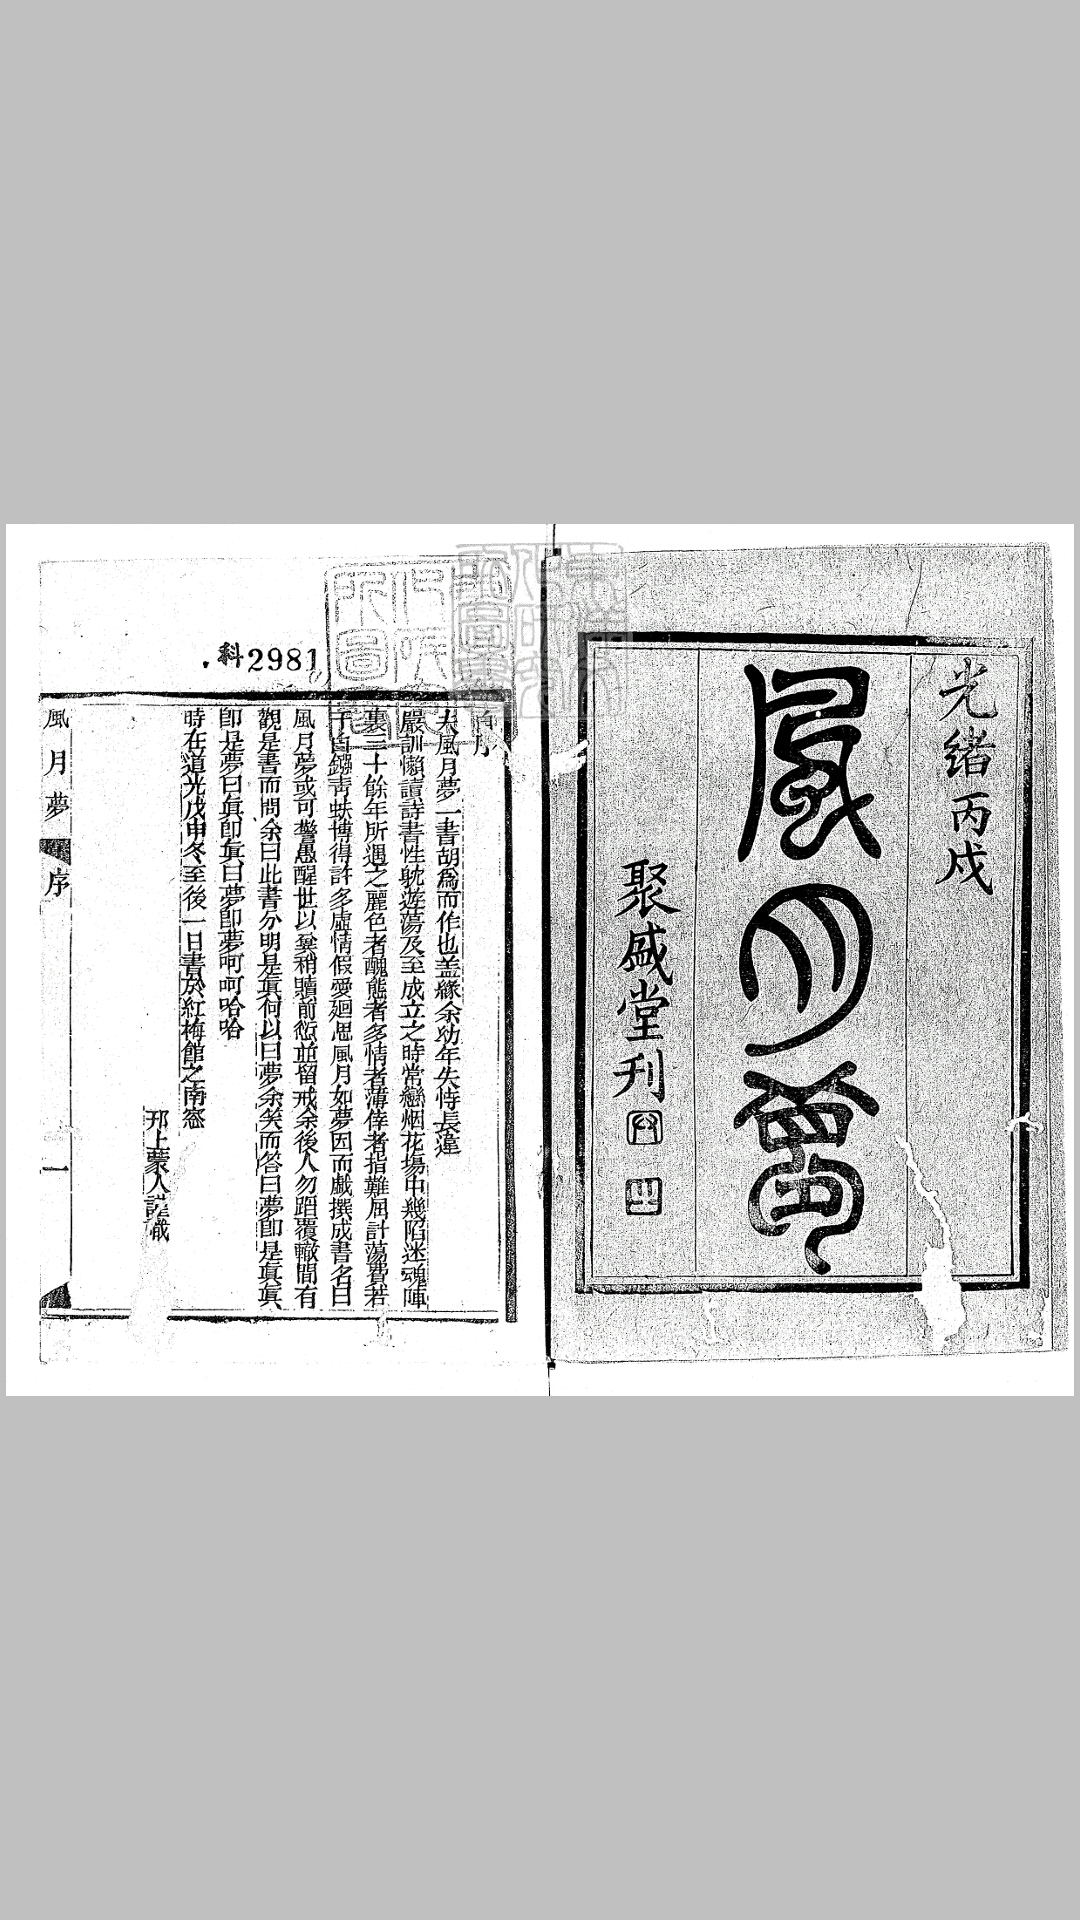 光緒丙戌
風月夢
聚盛堂刊
科2981
自序
夫風月夢一書胡爲而作也盖緣余幼年失恃長違
嚴訓懶讀詩書性躭遊蕩及至成立之時常戀烟花塲中幾陷迷魂陣
裏三十餘年所遇之麗色者醜態者多情者薄倖者指難屈計蕩費若
干白鏹靑蚨博得許多虛情假愛廻思風月如夢因而戲撰成書名曰
風月夢或可警愚醒世以冀稍贖前愆並留戒余後人勿蹈覆轍間有
觀是書而問余曰此書分明是眞何以曰夢余笑而答曰夢卽是眞眞
卽是夢曰眞卽眞曰夢卽夢呵呵哈哈
時在道光戊申冬至後一日書於紅梅館之南窓
邗上蒙人謹識
風月夢 序 一